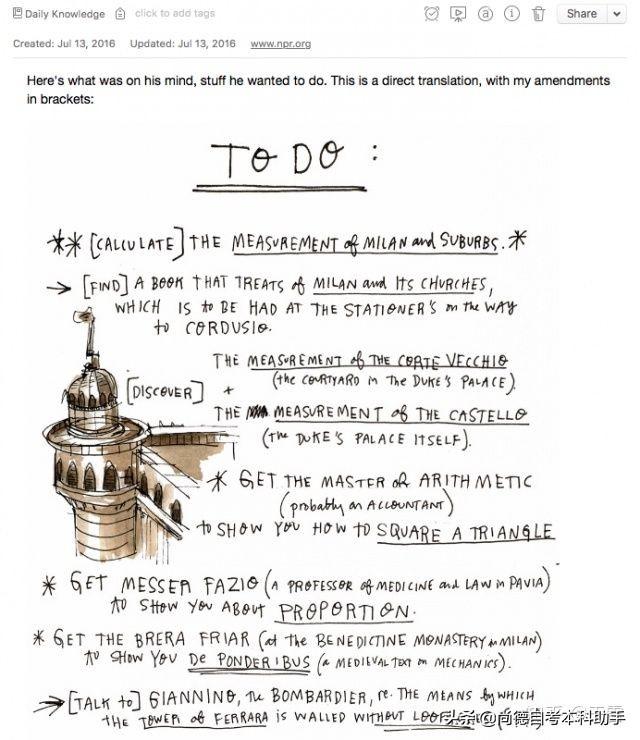 Daily Knowledge click to add tags Share
Created: Jul 13, 2016 Updated: Jul 13, 2016 www.npr.org
Here's what was on his mind, stuff he wanted to do. This is a direct translation, with my amendments
in brackets:
TO DO :
** [CALCULATE] THE MEASUREMENT of MILAN and SUBURBS. *
→ [FIND] A BOOK THAT TREATS of MILAN and ITS CHURCHES,
WHICH IS to BE HAD AT THE STATIONER'S on the WAY
to CORDUSIO.
THE MEASUREMENT of THE CORTE VECCHIO
(the COURTYARD in THE DUKE'S PALACE).
[DISCOVER] +
THE MEASUREMENT of THE CASTELLO
(THE DUKE'S PALACE ITSELF).
* GET THE MASTER of ARITHMETIC
(probably an ACCOUNTANT)
to SHOW YOU HOW TO SQUARE A TRIANGLE
* GET MESSER FAZIO (A PROFESSOR of MEDICINE and LAW in PAVIA)
to SHOW YOU ABOUT PROPORTION.
* GET THE BRERA FRIAR (at the BENEDICTINE MONASTERY in MILAN)
to SHOW YOU De PONDERIBUS (a MEDIEVAL TEXT on MECHANICS).
→ [TALK to] GIANNINO, THE BOMBARDIER, re. THE MEANS by WHICH
THE TOWER of FERRARA is WALLED WITHOUT
头条 @尚德自考本科助手